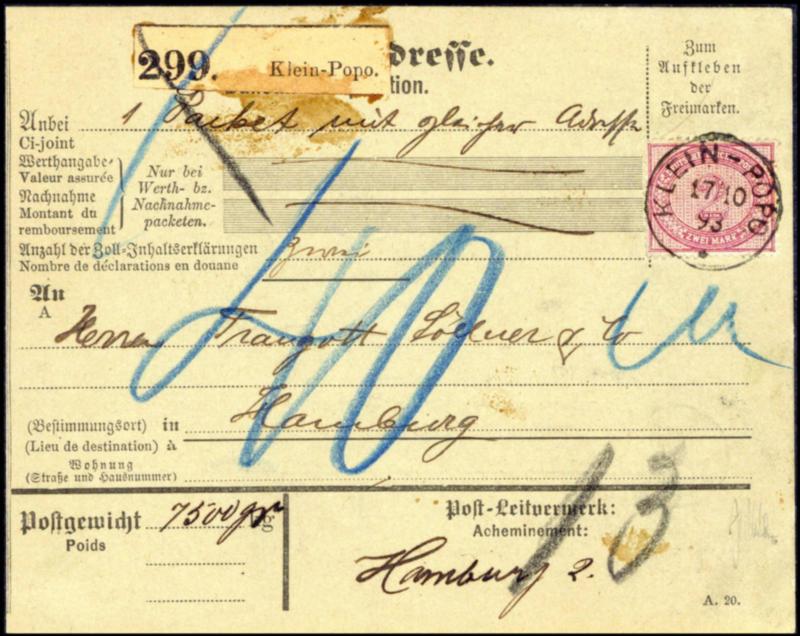 299. Klein-Popo.
dresse.
tion.
Zum
Aufkleben
der
Freimarken.
Anbei 1 Packet mit gleicher Adresse
Ci-joint
Werthangabe
Valeur assurée
Nachnahme
Montant du
remboursement
Nur bei
Werth- bz.
Nachnahme-
packeten.
KLEIN-POPO
17/10
93
ZWEI MARK
Anzahl der Zoll-Inhaltserklärungen zwei
Nombre de déclarations en douane
An
A
Herrn Traugott Söllner & Co
40
(Bestimmungsort) in Hamburg
(Lieu de destination) à
Wohnung
(Straße und Hausnummer)
Postgewicht 7500 gr
Poids
Post-Leitvermerk:
Acheminement:
Hamburg 2.
13
A. 20.